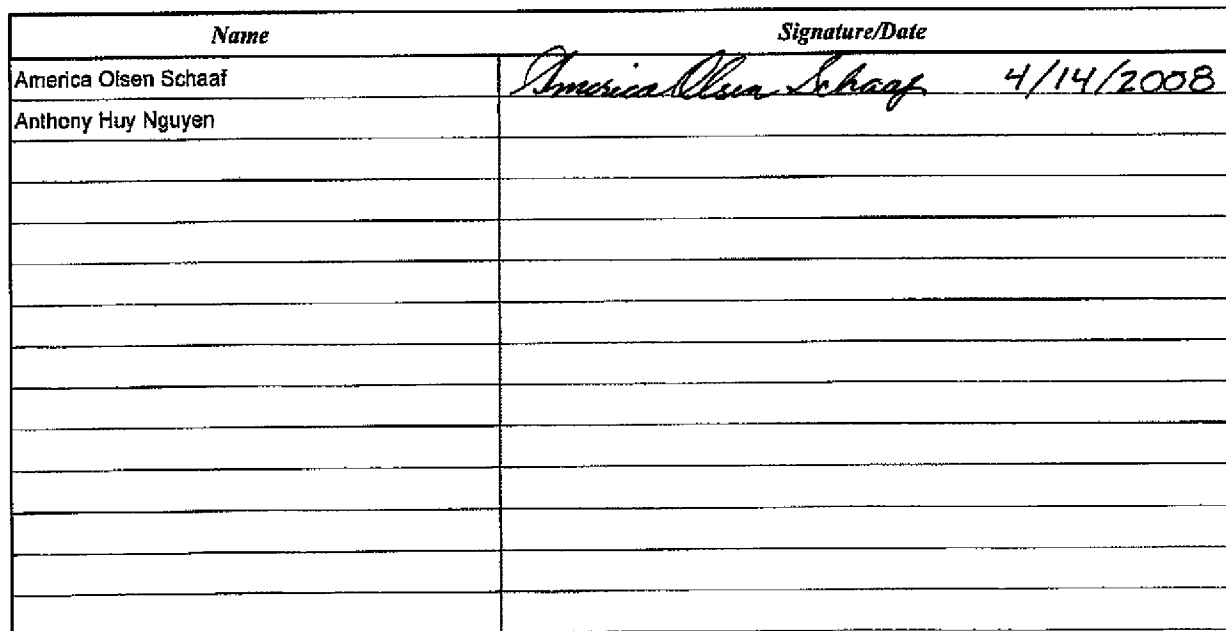 Name Signature/Date
America Olsen Schaaf America Olsen Schaaf 4/14/2008
Anthony Huy Nguyen